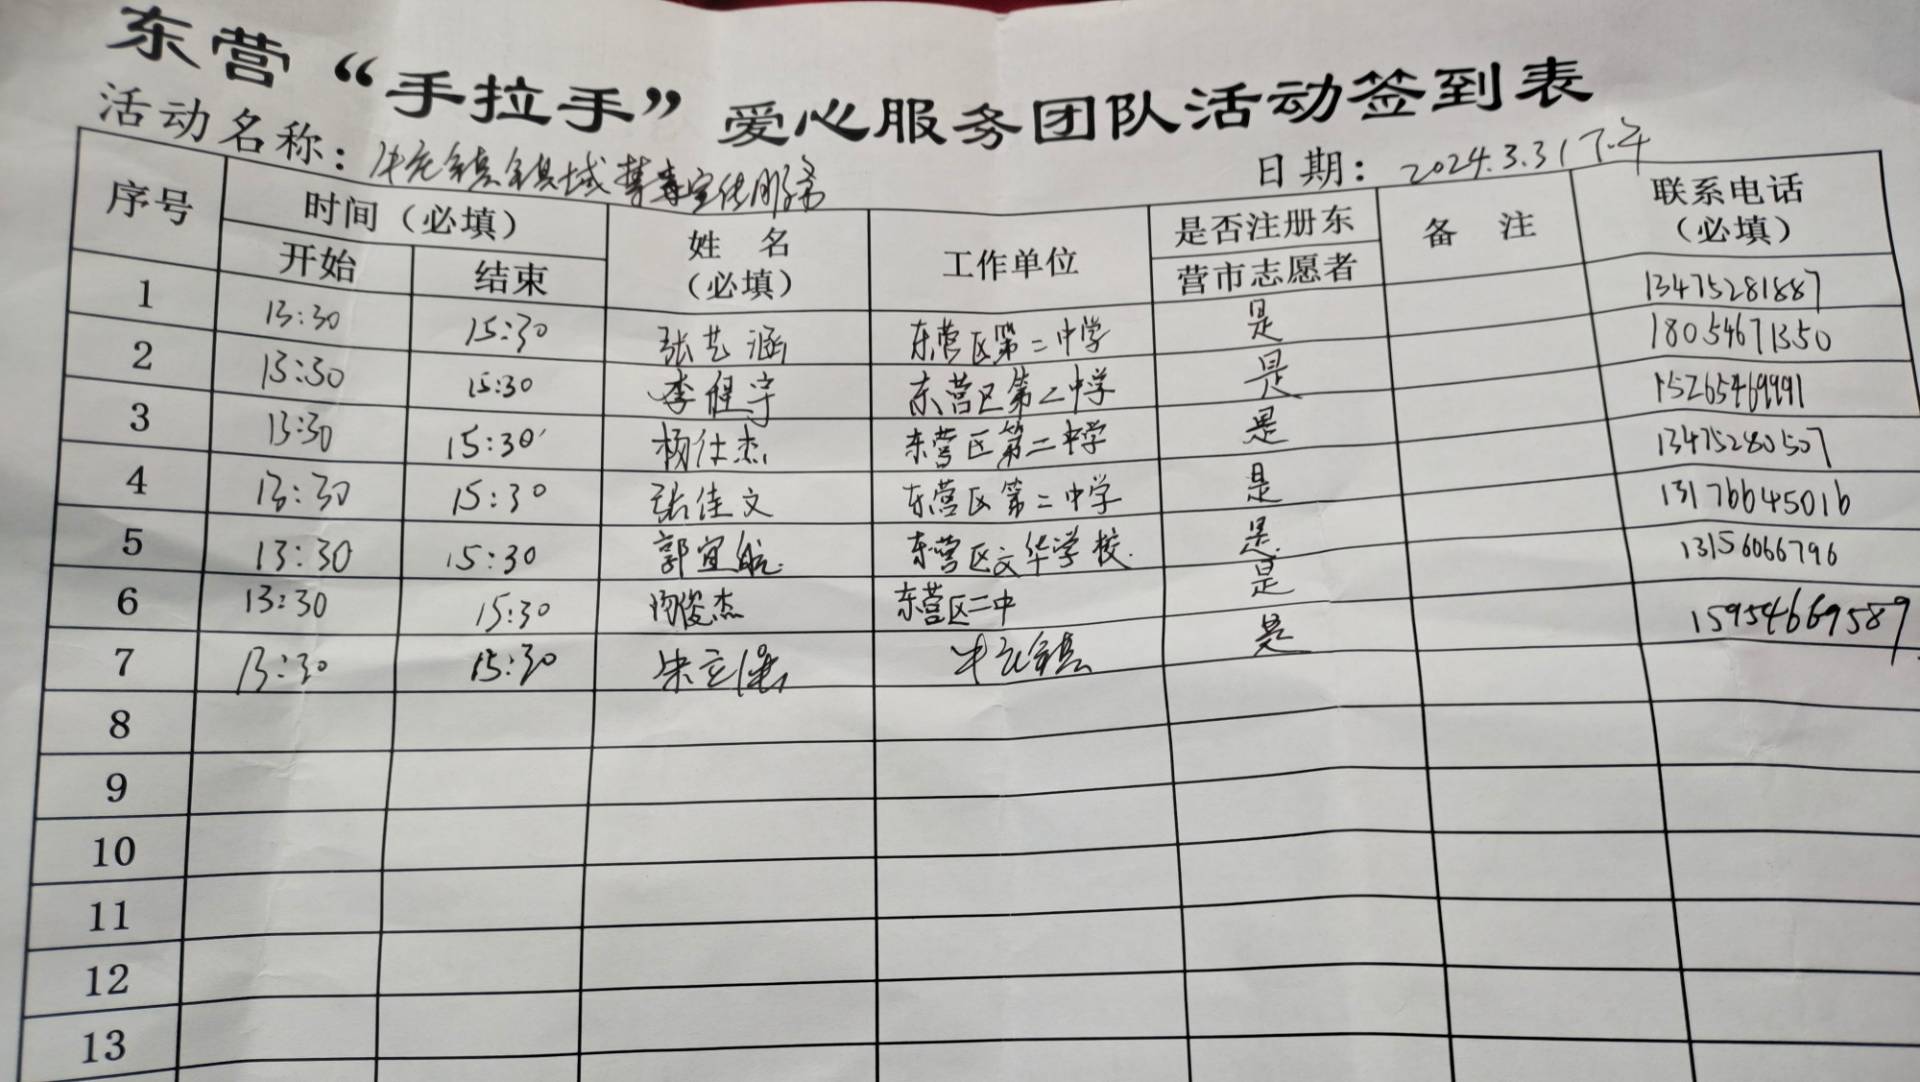 东营“手拉手”爱心服务团队活动签到表
活动名称：牛庄镇镇域禁毒宣传服务 日期：2024.3.31下午
序号 时间（必填） 姓 名（必填） 工作单位 是否注册东营市志愿者 备 注 联系电话（必填）
开始 结束
1 13:30 15:30 张艺涵 东营区第二中学 是 13475281887
2 13:30 15:30 李健宇 东营区第二中学 是 18054671350
3 13:30 15:30 杨仕杰 东营区第二中学 是 15265469991
4 13:30 15:30 张佳文 东营区第二中学 是 13475280507
5 13:30 15:30 郭宜航 东营区文华学校. 是 13176645016
6 13:30 15:30 陶俊杰 东营区二中 是 13156066796
7 13:30 15:30 宋立强 牛庄镇 是 15954669589
8
9
10
11
12
13